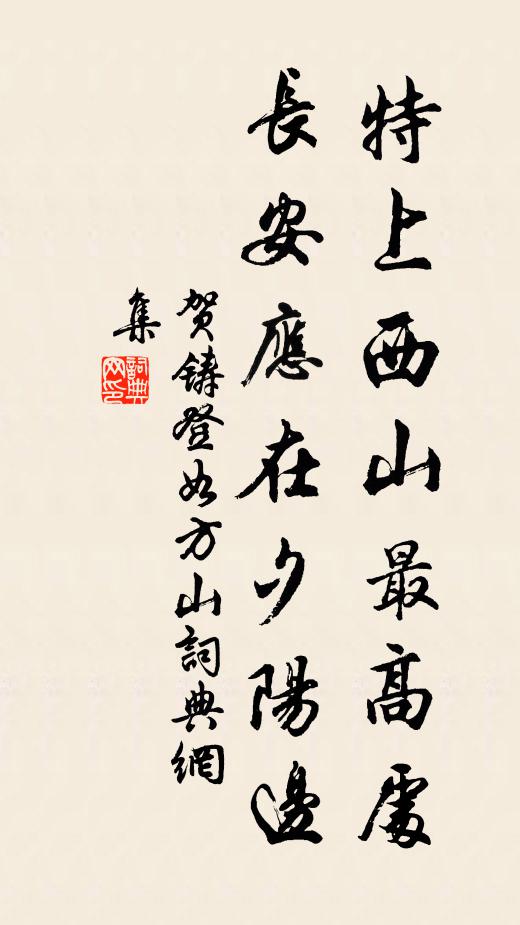 特上西山最高處
長安應在夕陽邊
賀鑄登如方山詞典網
集
詞典網印